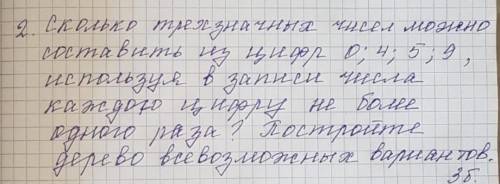 2. Сколько трехзначных чисел можно
составить из цифр 0; 4; 5; 9,
используя в записи числа
каждою цифру не более
одного раза? Постройте
дерево всевозможных вариантов.
3б.